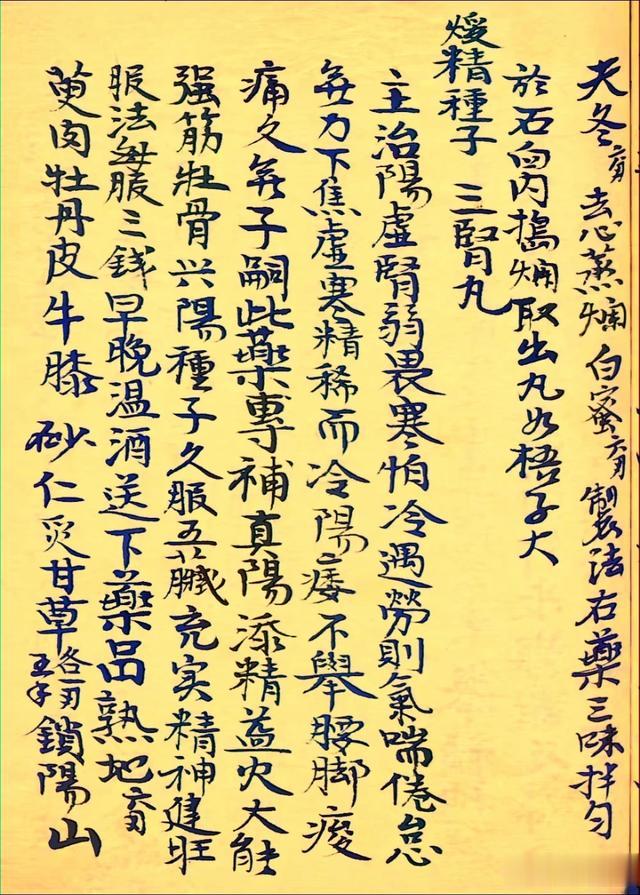 天冬去心蒸爛白蜜製法右藥三味拌勻
於石臼內搗爛取出丸如梧子大
煖精種子 三腎丸
主治陽虛腎弱畏寒怕冷遇勞則氣喘倦怠
無力下焦虛寒精稀而冷陽痿不舉腰脚痠
痛久無子嗣此藥專補真陽添精益火大能
强筋壯骨兴陽種子久服五臟充实精神建旺
服法每服三錢早晚温酒送下藥品熟地
萸肉牡丹皮牛膝砂仁炙甘草各鎖陽山